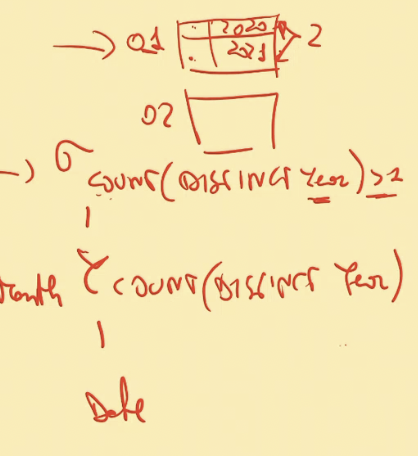 → 01 2020 2
2021
02
→ σ COUNT(DISTINCT Year)>1
γ COUNT(DISTINCT Year)
Date